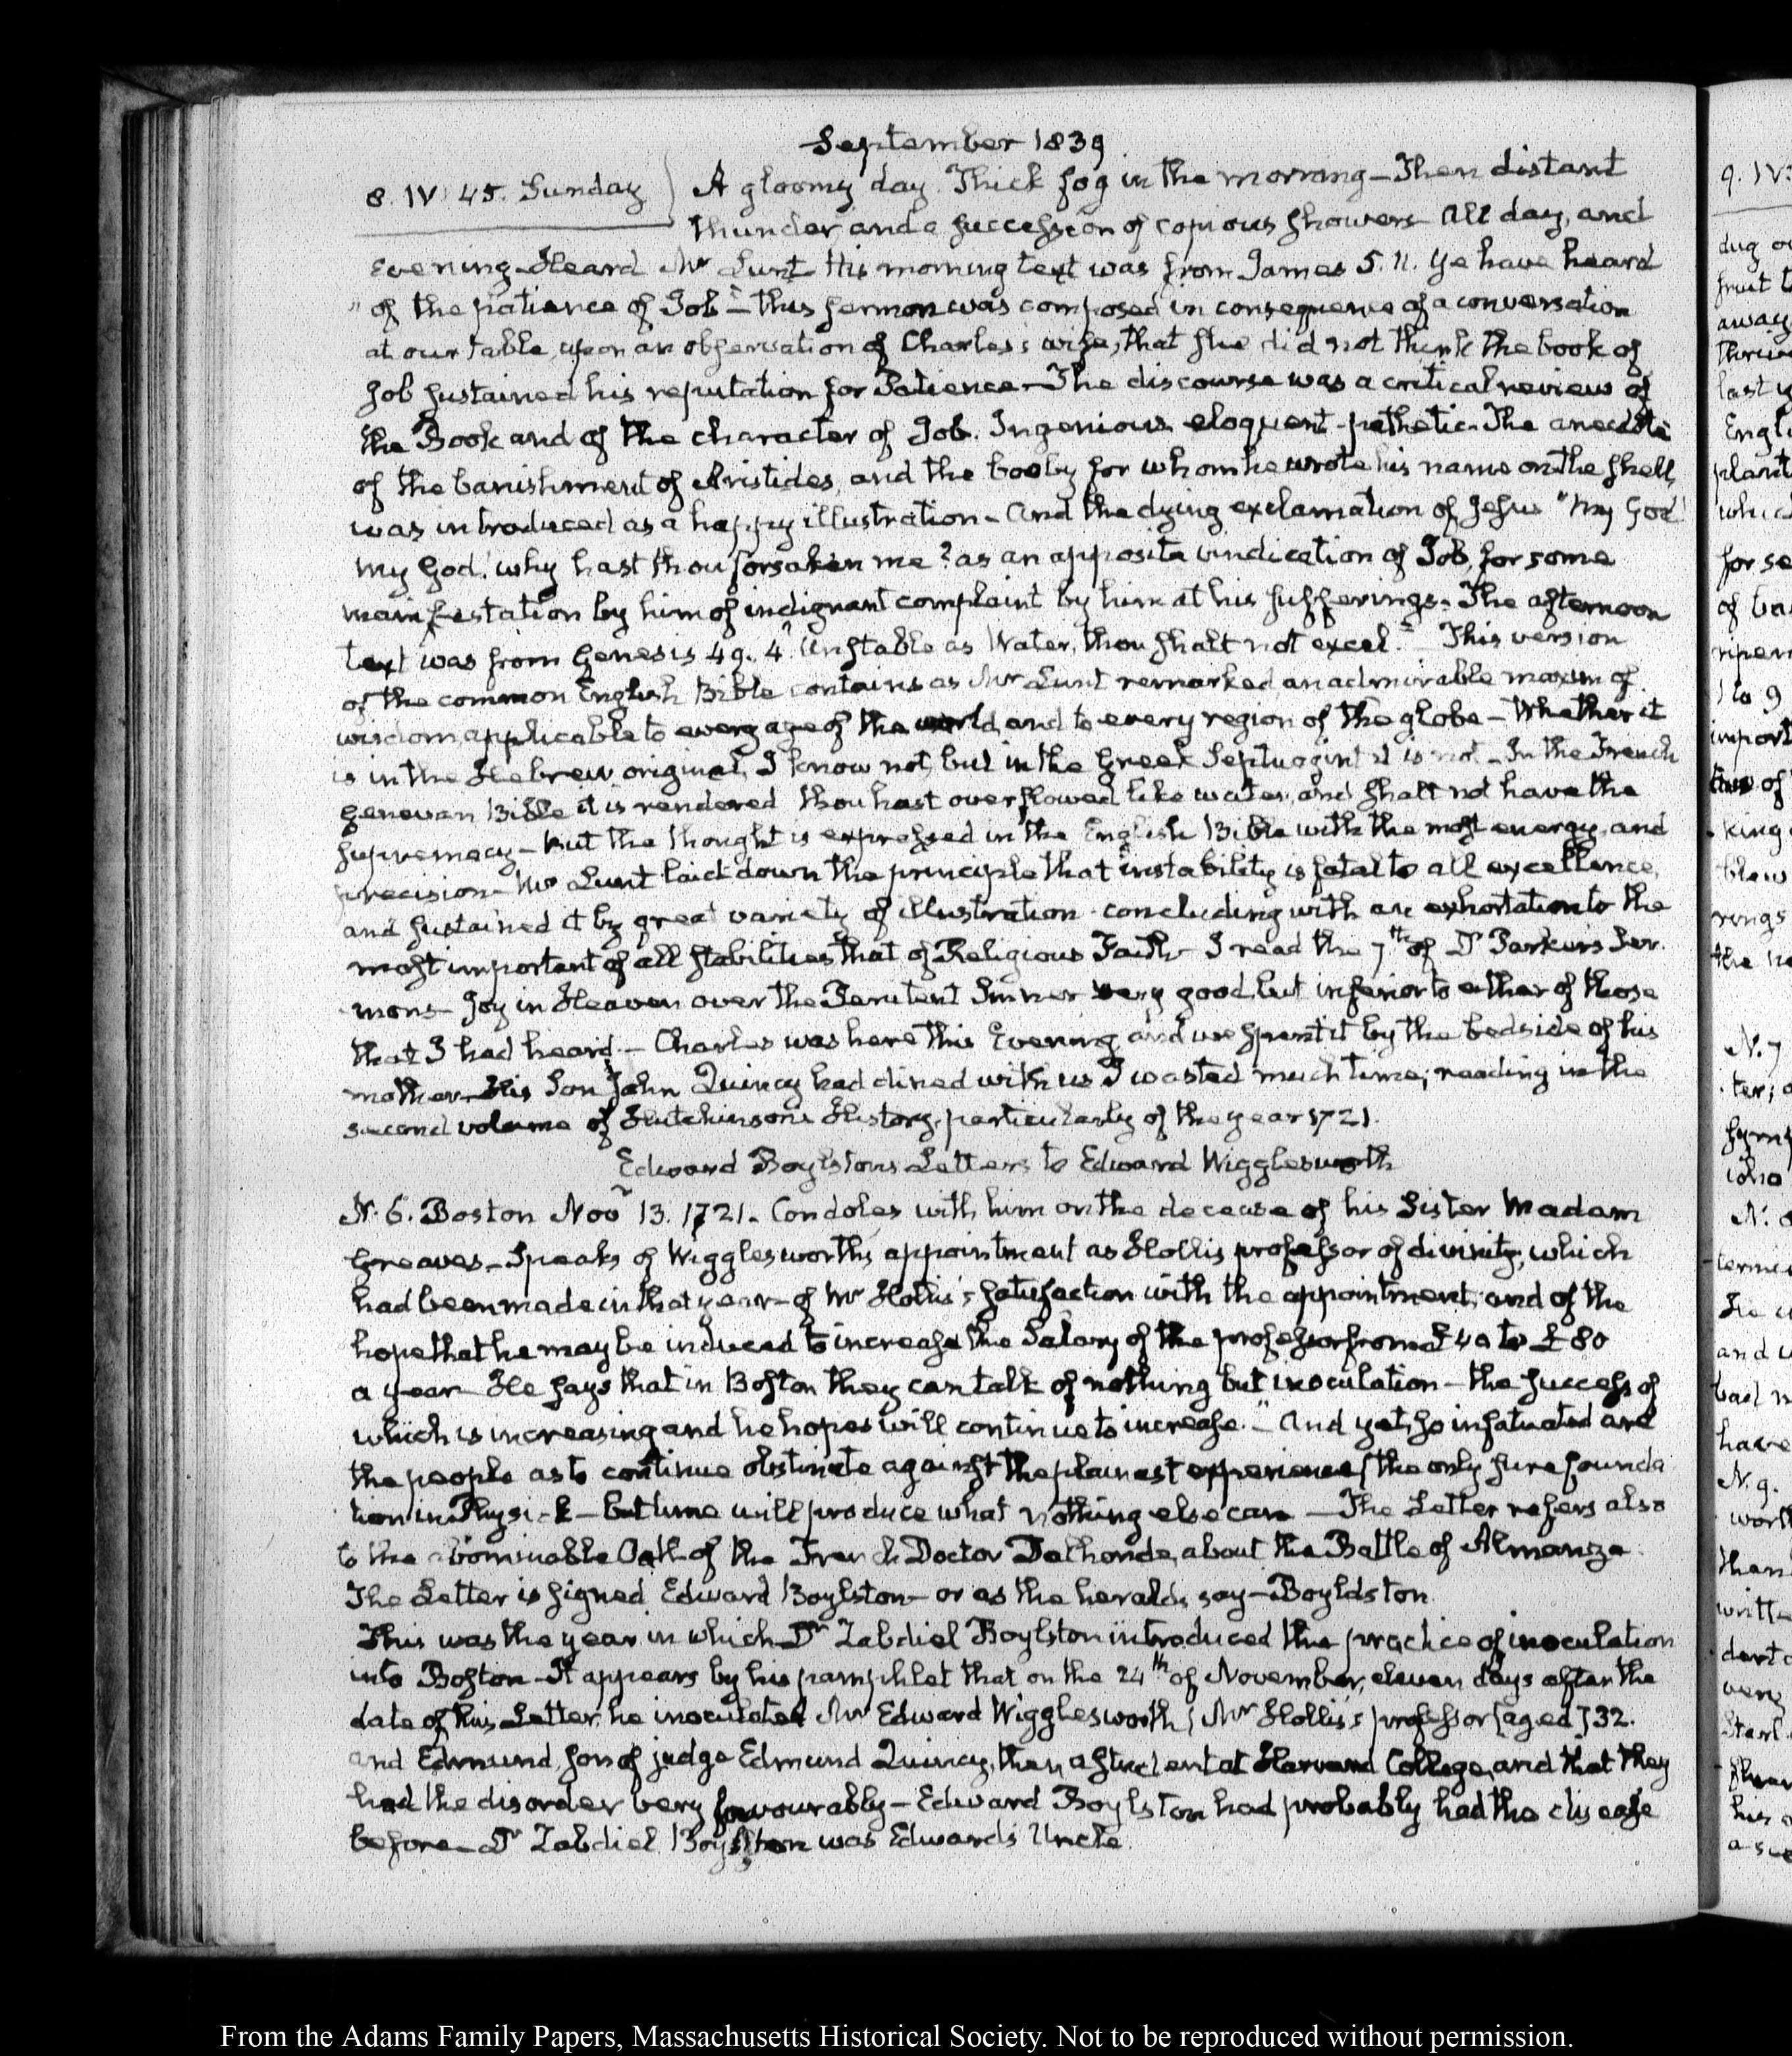 September 1839
8. IV: 45. Sunday } A gloomy day. Thick fog in the morning — Then distant
thunder and a succession of copious showers all day, and
Evening. Heard Mr Lunt. His morning text was from James 5. 11. Ye have heard
" of the patience of Job" — this sermon was composed in consequence of a conversation
at our table, upon an observation of Charles's wife, that she did not think the book of
Job sustained his reputation for Patience — The discourse was a critical review of
the Book and of the character of Job. Ingenious eloquent - pathetic. The anecdote
of the banishment of Aristides, and the booby for whom he wrote his name on the shell,
was introduced as a happy illustration — And the dying exclamation of Jesus "My God
My God! why hast thou forsaken me? as an apposite vindication of Job, for some
manifestation by him of indignant complaint by him at his sufferings. The afternoon
text was from Genesis 49. 4. "Unstable as Water, thou shalt not excel." — This version
of the common English Bible contains as Mr Lunt remarked, an admirable maxim of
wisdom, applicable to every age of the world, and to every region of the globe — Whether it
is in the Hebrew original, I know not, but in the Greek Septuagint it is not — In the French
Genevan Bible it is rendered thou hast overflowed like water, and shalt not have the
supremacy — but the thought is expressed in the English Bible with the most energy and
precision — Mr Lunt laid down the principle that instability is fatal to all excellence,
and sustained it by great variety of illustration concluding with an exhortation to the
most important of all stabilities that of Religious Faith — I read the 7th of Dr Parkers Ser-
mons — Joy in Heaven over the Penitent Sinner very good, but inferior to either of those
that I had heard. — Charles was here this Evening and we spent it by the bedside of his
mother — His Son John Quincy had dined with us. I wasted much time, reading in the
second volume of Hutchinson's History, particularly of the year 1721.
Edward Boylstons Letters to Edward Wigglesworth
N. 6. Boston Nov 13. 1721. Condoles with him on the decease of his Sister Madam
Greaves — Speaks of Wigglesworth's appointment as Hollis professor of divinity, which
had been made in that year — of Mr Hollis's satisfaction with the appointment, and of the
hope that he may be induced to increase the Salary of the professor from £40 to £80
a year — He says that in Boston they can talk of nothing but inoculation — the success of
which is increasing and he hopes will continue to increase. — "And yet, so infatuated are
the people as to continue obstinate against the plainest experience, the only sure founda-
tion in Physick — but time will produce what nothing else can — The Letter refers also
to the abominable Oath of the French Doctor Dalhonde, about the Battle of Almanza.
The Letter is signed Edward Boylston — or as the heralds say — Boyldston
This was the year in which Dr Zabdiel Boylston introduced the practice of inoculation
into Boston — It appears by his pamphlet that on the 24th of November, eleven days after the
date of this Letter, he inoculated Mr Edward Wigglesworth, Mr Hollis's professor [aged] 32.
and Edmund, son of judge Edmund Quincy, then a student at Harvard College, and that they
had the disorder very favourably — Edward Boylston had probably had the disease
before — Dr Zabdiel Boylston was Edwards Uncle.
From the Adams Family Papers, Massachusetts Historical Society. Not to be reproduced without permission.